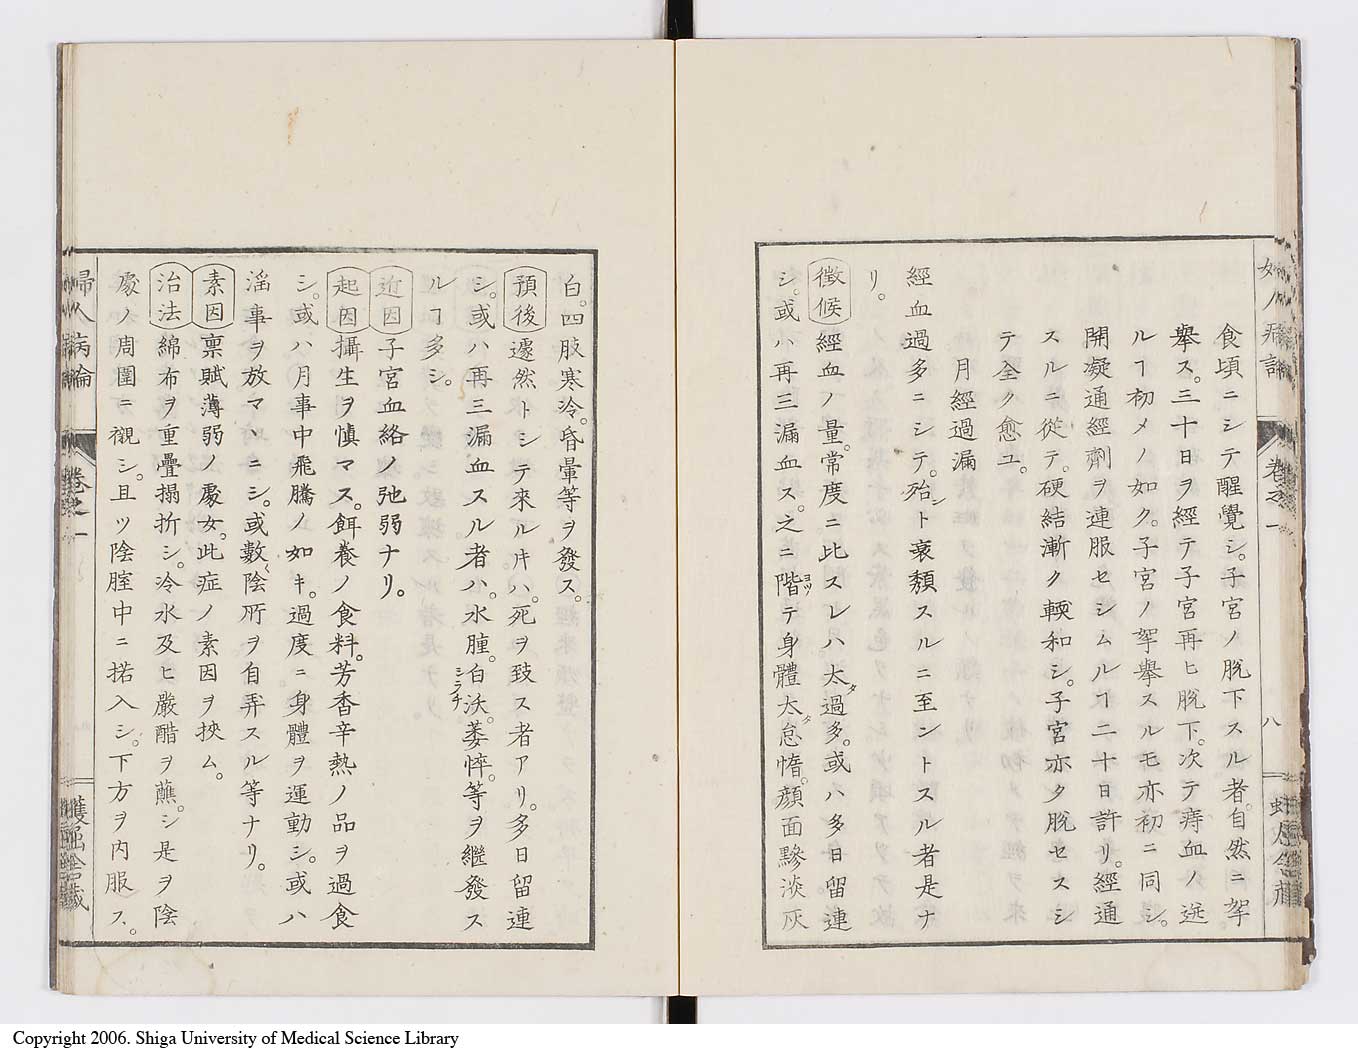 食頃ニシテ醒覺シ。子宮ノ脫下スル者。自然ニ牮
擧ス。三十日ヲ經テ子宮再ヒ脫下。次テ痔血ノ
ルヿ初メノ如ク。子宮ノ牮擧スルモ亦初ニ同シ。
開凝通經劑ヲ連服セシムルヿ二十日許リ。經通
スルニ從テ。硬結漸ク輭和シ。子宮亦タ脫セスシ
テ全ク愈ユ。
月經過漏
經血過多ニシテ。殆シト衰頽スルニ至ントスル者是ナ
リ。
徵候 經血ノ量。常度ニ比スレハ。太タ過多。或ハ多日留連
シ。或ハ再三漏血ス。之ニ階ヨツテ身體太タ怠惰。顏面黲淡灰
白。四肢寒冷。昏暈等ヲ發ス。
預後 遽然トシテ來ル𪜈ハ。死ヲ致ス者アリ。多日留連
シ。或ハ再三漏血スル者ハ。水腫。白沃シラチ。萎悴。等ヲ繼發ス
ルヿ多シ。
近因 子宮血絡ノ弛弱ナリ。
起因 攝生ヲ愼マス。餌養ノ食料。芳香辛熱ノ品ヲ過食
シ。或ハ月事中飛騰ノ如キ。過度ニ身體ヲ運動シ。或ハ
淫事ヲ放マヽニシ。或數〻陰所ヲ自弄スル等ナリ。
素因 稟賦薄弱ノ處女。此症ノ素因ヲ挾ム。
治法 綿布ヲ重疊搨折シ。冷水及ヒ嚴醋ヲ蘸シ是ヲ陰
處ノ周圍ニ襯シ。且ツ陰腟中ニ掿入シ。下方ヲ內服ス。
婦人病論
卷之一
八
婦人病論
卷之一
Copyright 2006. Shiga University of Medical Science Library